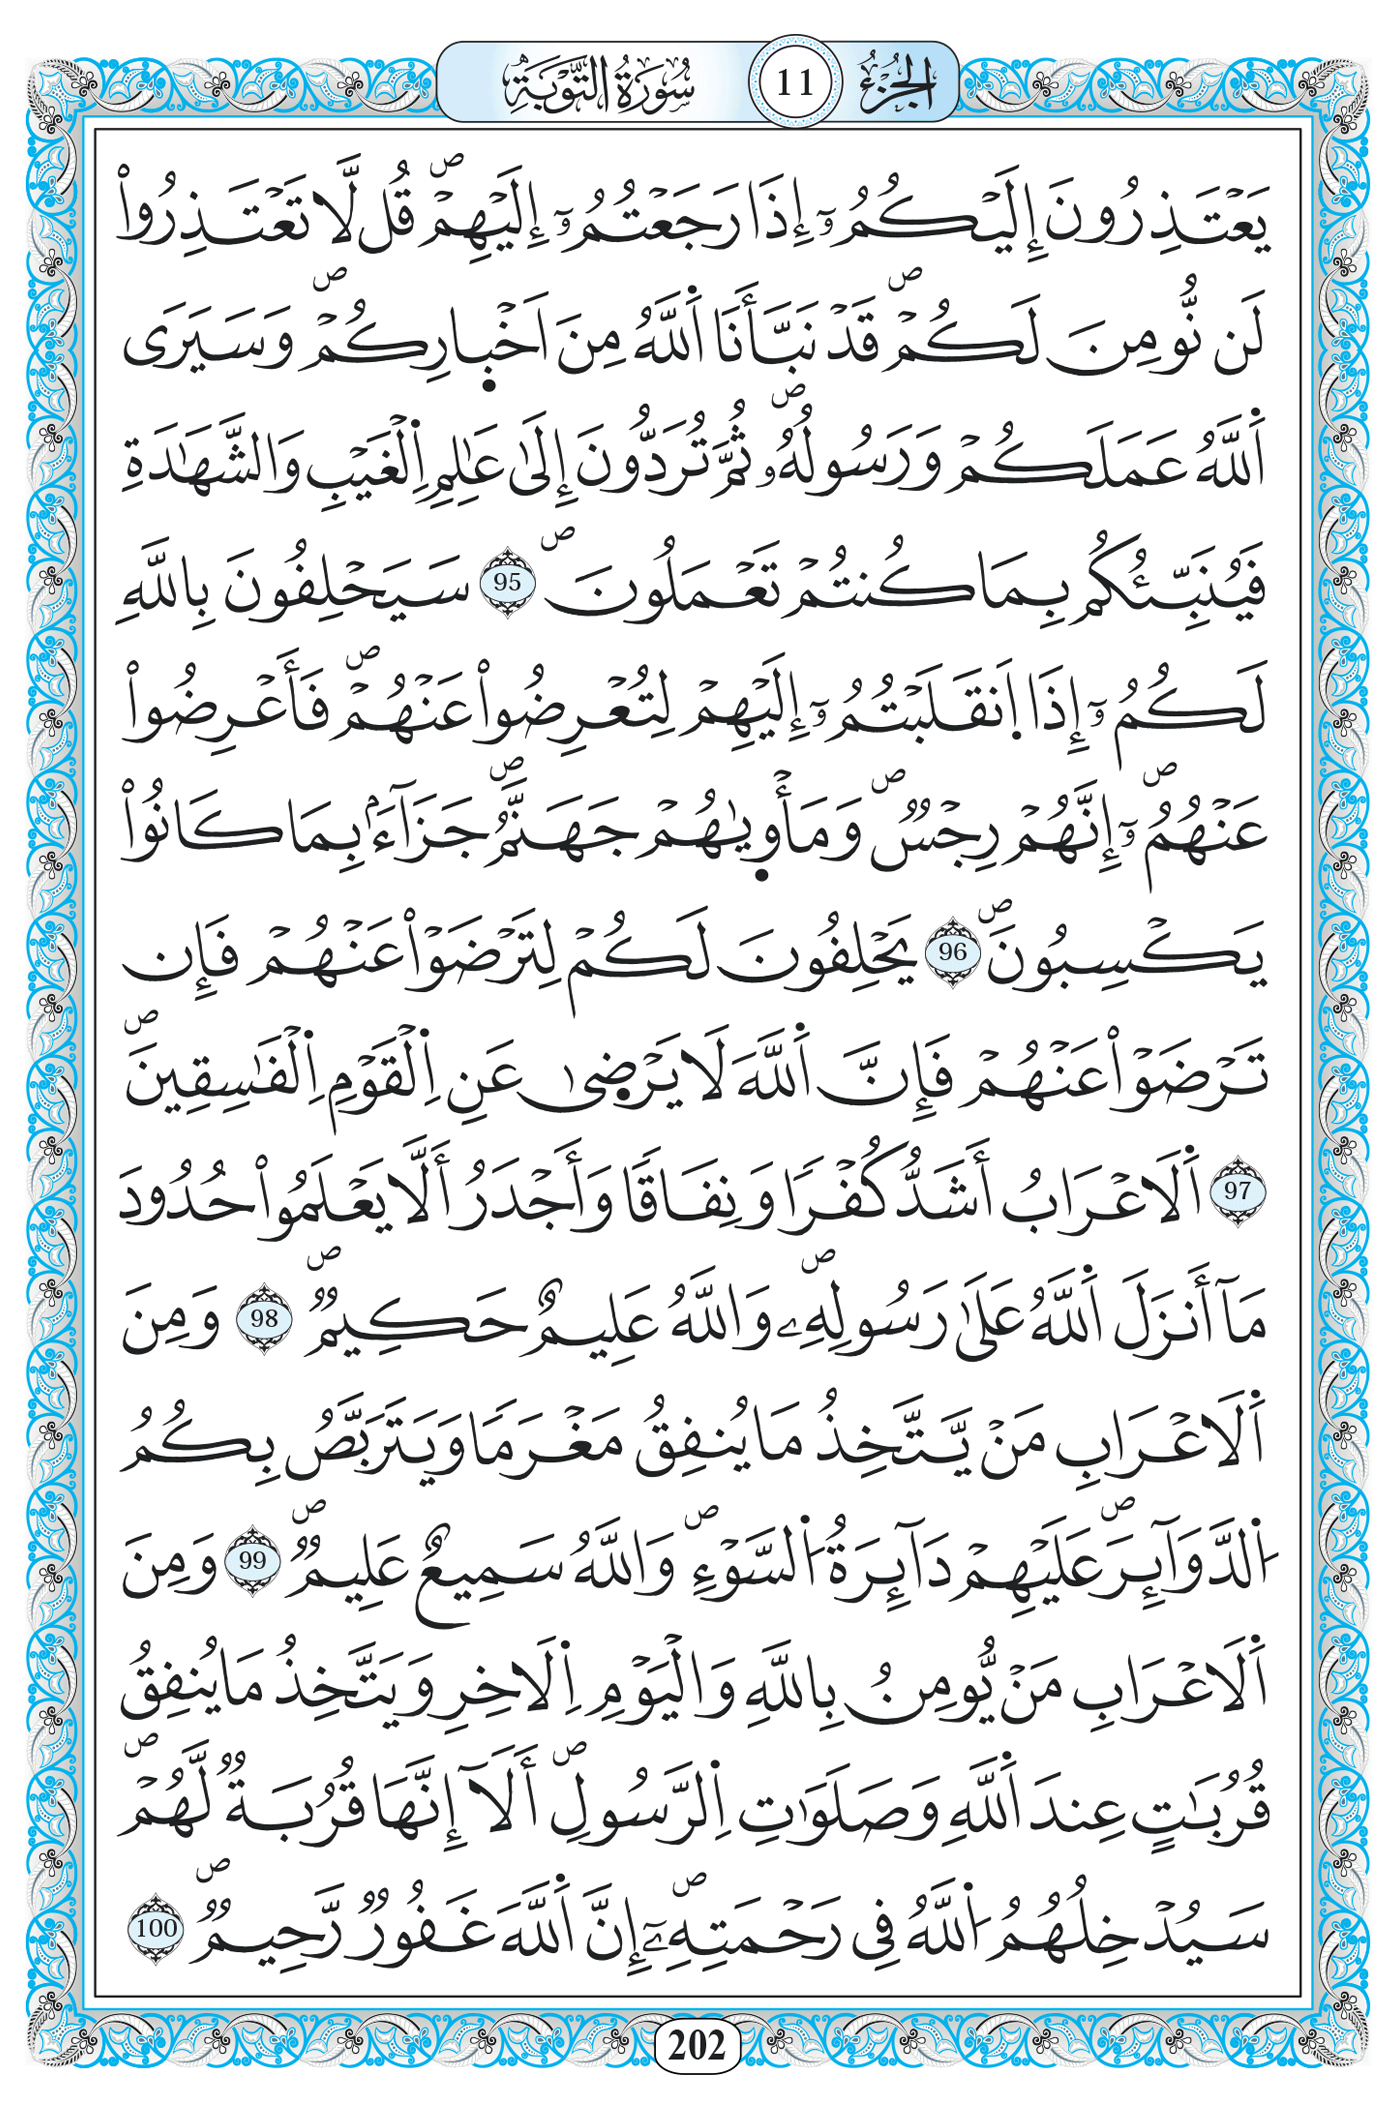 الجُزْءُ 11 سُورَةُ التَّوْبَةِ
يَعْتَذِرُونَ إِلَيْكُمُۥٓ إِذَا رَجَعْتُمُۥٓ إِلَيْهِمْۖ قُل لَّا تَعْتَذِرُواْ
لَن نُّومِنَ لَكُمْۖ قَدْ نَبَّأَنَا اَ۬للَّهُ مِنَ اَخْب۪ارِكُمْۖ وَسَيَرَى
اَ۬للَّهُ عَمَلَكُمْ وَرَسُولُهُۥۖ ثُمَّ تُرَدُّونَ إِلَىٰ عَٰلِمِ اِ۬لْغَيْبِ وَالشَّهَٰدَةِ
فَيُنَبِّئُكُم بِمَا كُنتُمْ تَعْمَلُونَۖ 95 سَيَحْلِفُونَ بِاللَّهِ
لَكُمُۥٓ إِذَا اَ۪نقَلَبْتُمُۥٓ إِلَيْهِمْ لِتُعْرِضُواْ عَنْهُمْۖ فَأَعْرِضُواْ
عَنْهُمُۥٓۖ إِنَّهُمْ رِجْسٞۖ وَمَأْو۪يٰهُمْ جَهَنَّمُۖ جَزَآءَۢ بِمَا كَانُواْ
يَكْسِبُونَۖ 96 يَحْلِفُونَ لَكُمْ لِتَرْضَوْاْ عَنْهُمْ فَإِن
تَرْضَوْاْ عَنْهُمْ فَإِنَّ اَ۬للَّهَ لَا يَرْض۪ىٰ عَنِ اِ۬لْقَوْمِ اِ۬لْفَٰسِقِينَۖ
97 اَ۬لَاعْرَابُ أَشَدُّ كُفْرٗا وَنِفَاقٗا وَأَجْدَرُ أَلَّا يَعْلَمُواْ حُدُودَ
مَآ أَنزَلَ اَ۬للَّهُ عَلَىٰ رَسُولِهِۦۖ وَاللَّهُ عَلِيمٌ حَكِيمٞۖ 98 وَمِنَ
اَ۬لَاعْرَابِ مَنْ يَّتَّخِذُ مَا يُنفِقُ مَغْرَمٗا وَيَتَرَبَّصُ بِكُمُ
اُ۬لدَّوَآئِرَۖ عَلَيْهِمْ دَآئِرَةُ اُ۬لسَّوْءِۖ وَاللَّهُ سَمِيعٌ عَلِيمٞۖ 99 وَمِنَ
اَ۬لَاعْرَابِ مَنْ يُّومِنُ بِاللَّهِ وَالْيَوْمِ اِ۬لَاخِرِ وَيَتَّخِذُ مَا يُنفِقُ
قُرُبَٰتٍ عِندَ اَ۬للَّهِ وَصَلَوَٰتِ اِ۬لرَّسُولِۖ أَلَآ إِنَّهَا قُرُبَةٞ لَّهُمْۖ
سَيُدْخِلُهُمُ اُ۬للَّهُ فِي رَحْمَتِهِۦٓۖ إِنَّ اَ۬للَّهَ غَفُورٞ رَّحِيمٞۖ 100
202